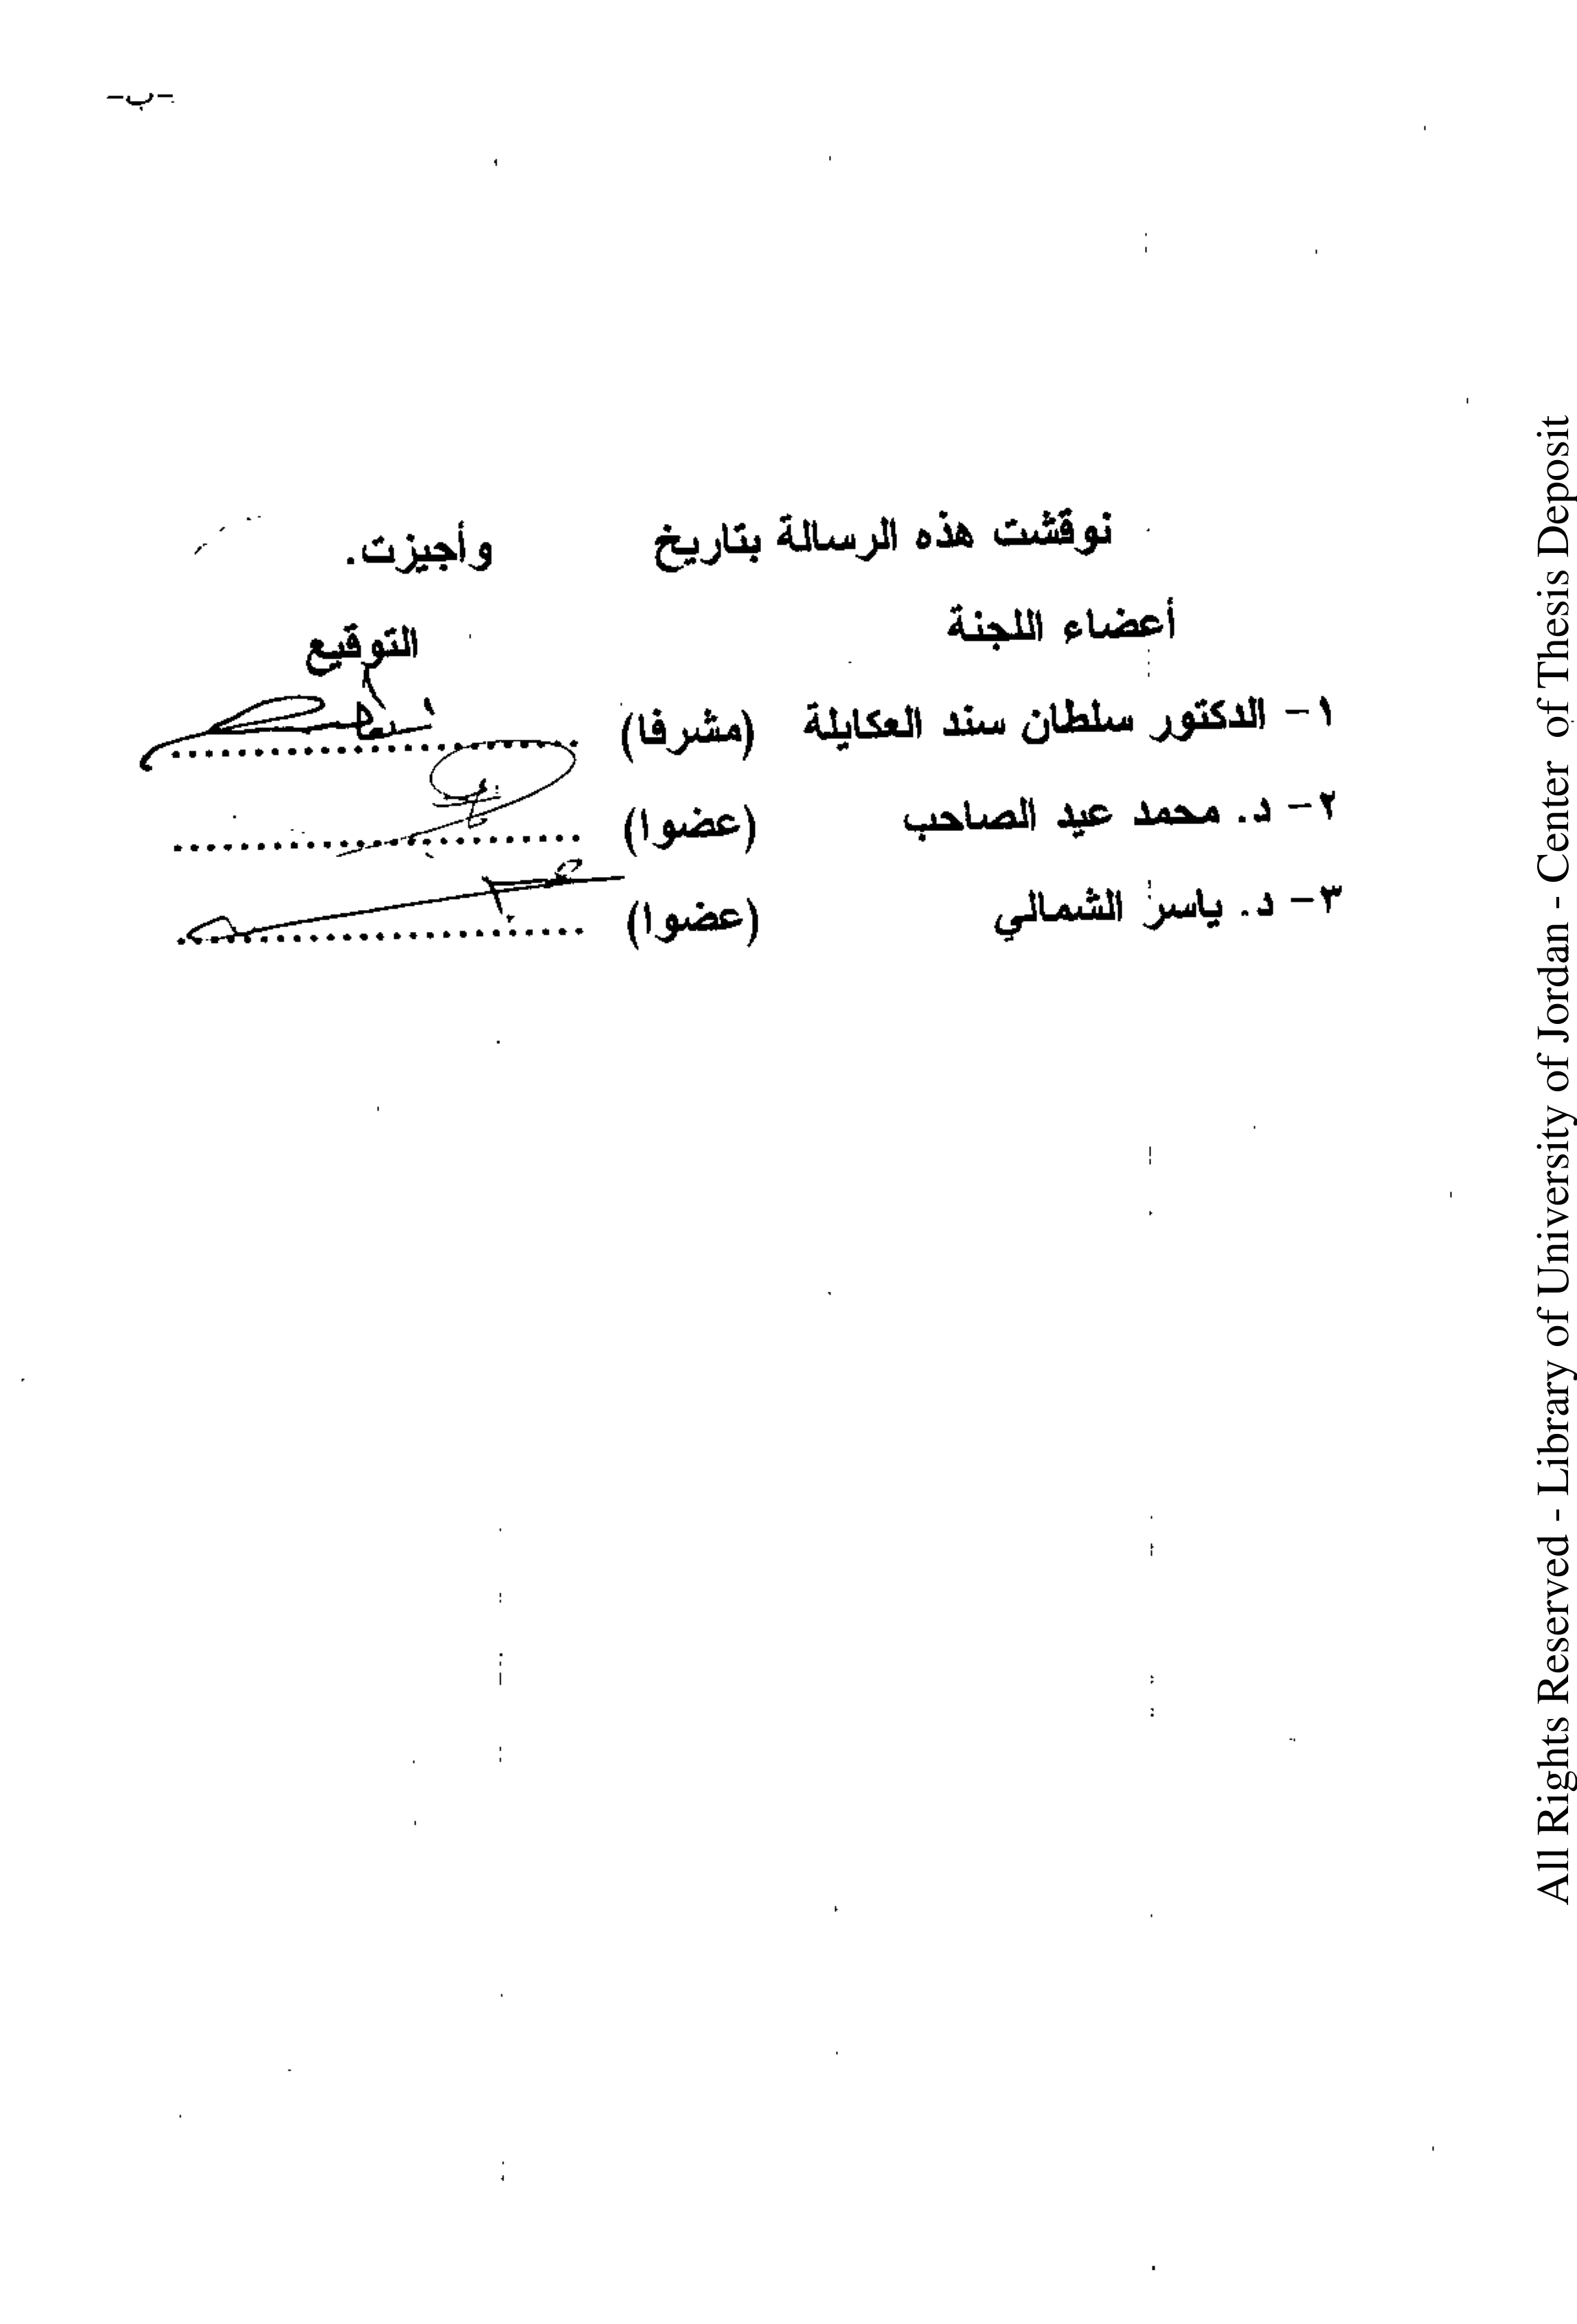 -ب-
نوقشت هذه الرسالة بتاريخ وأجيزت.
أعضاء اللجنة التوقيع
١- الدكتور سلطان سند العكايلة (مشرفا) ....................
٢- د. محمد عيد الصاحب (عضوا) ....................
٣- د. ياسر الشمالي (عضوا) ....................
All Rights Reserved - Library of University of Jordan - Center of Thesis Deposit